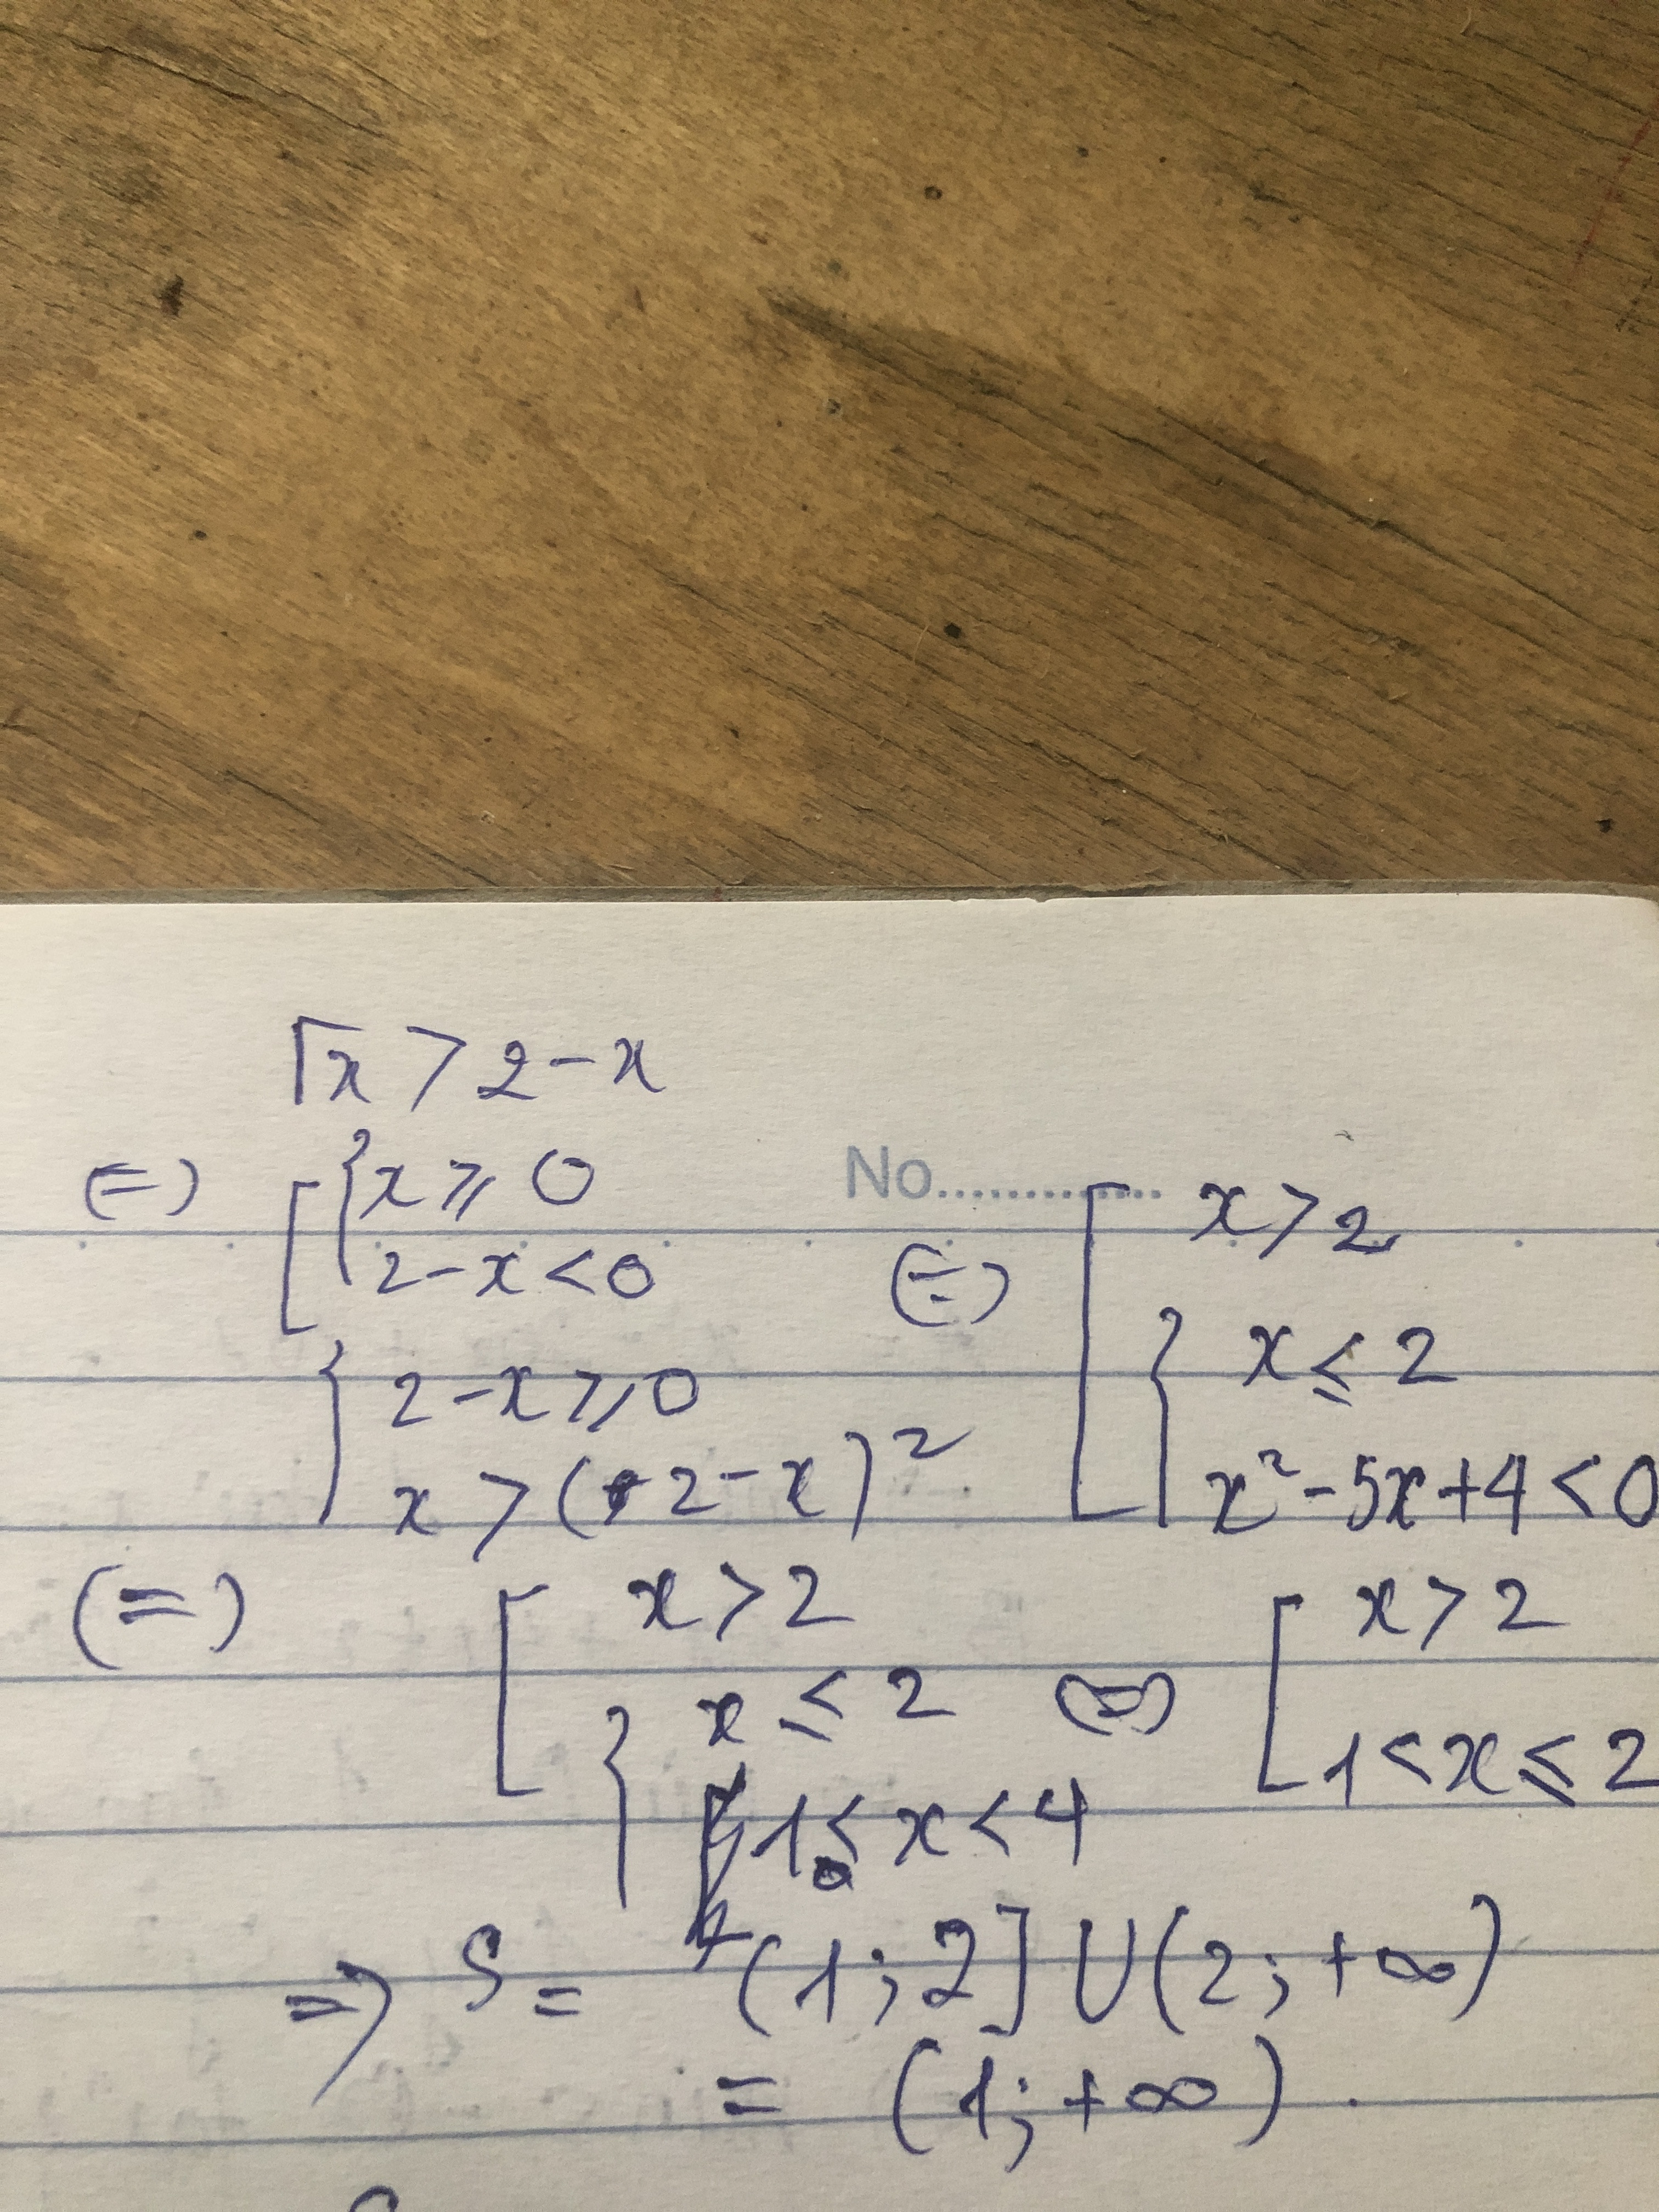 √x > 2 - x
(=) [ { x ⩾ 0
2 - x < 0
{ 2 - x ⩾ 0
x > (2 - x)²
No..............
(=) [ x > 2
{ x ≤ 2
x² - 5x + 4 < 0
(=) [ x > 2
{ x ≤ 2
1 < x < 4
(=) [ x > 2
1 < x ≤ 2
=> S = (1; 2] U (2; +∞)
= (1; +∞).